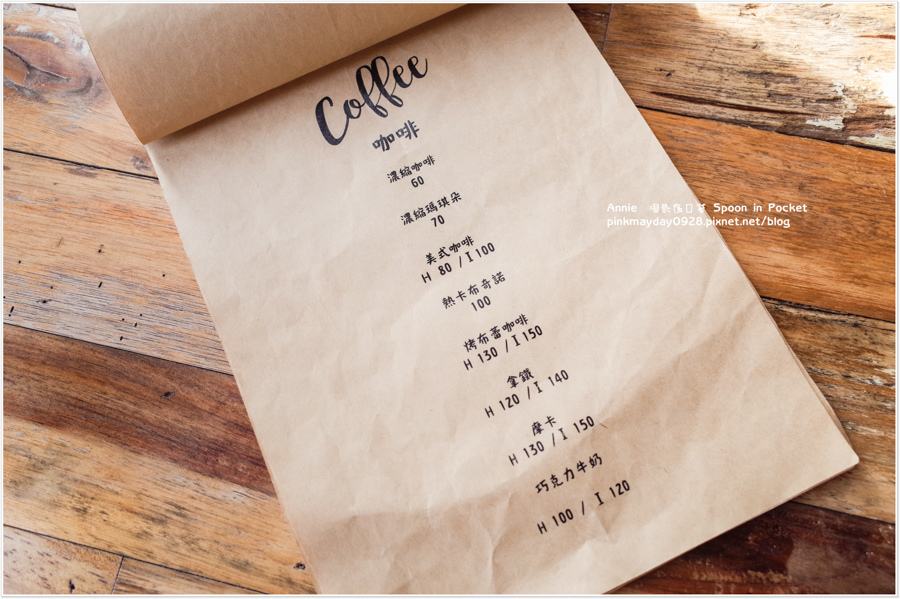 Coffee
咖啡
濃縮咖啡
60
濃縮瑪琪朵
70
美式咖啡
H 80 / I 100
熱卡布奇諾
100
烤布蕾咖啡
H 130 / I 150
拿鐵
H 120 / I 140
摩卡
H 130 / I 150
巧克力牛奶
H 100 / I 120
Annie Spoon in Pocket
pinkmayday0928.pixnet.net/blog